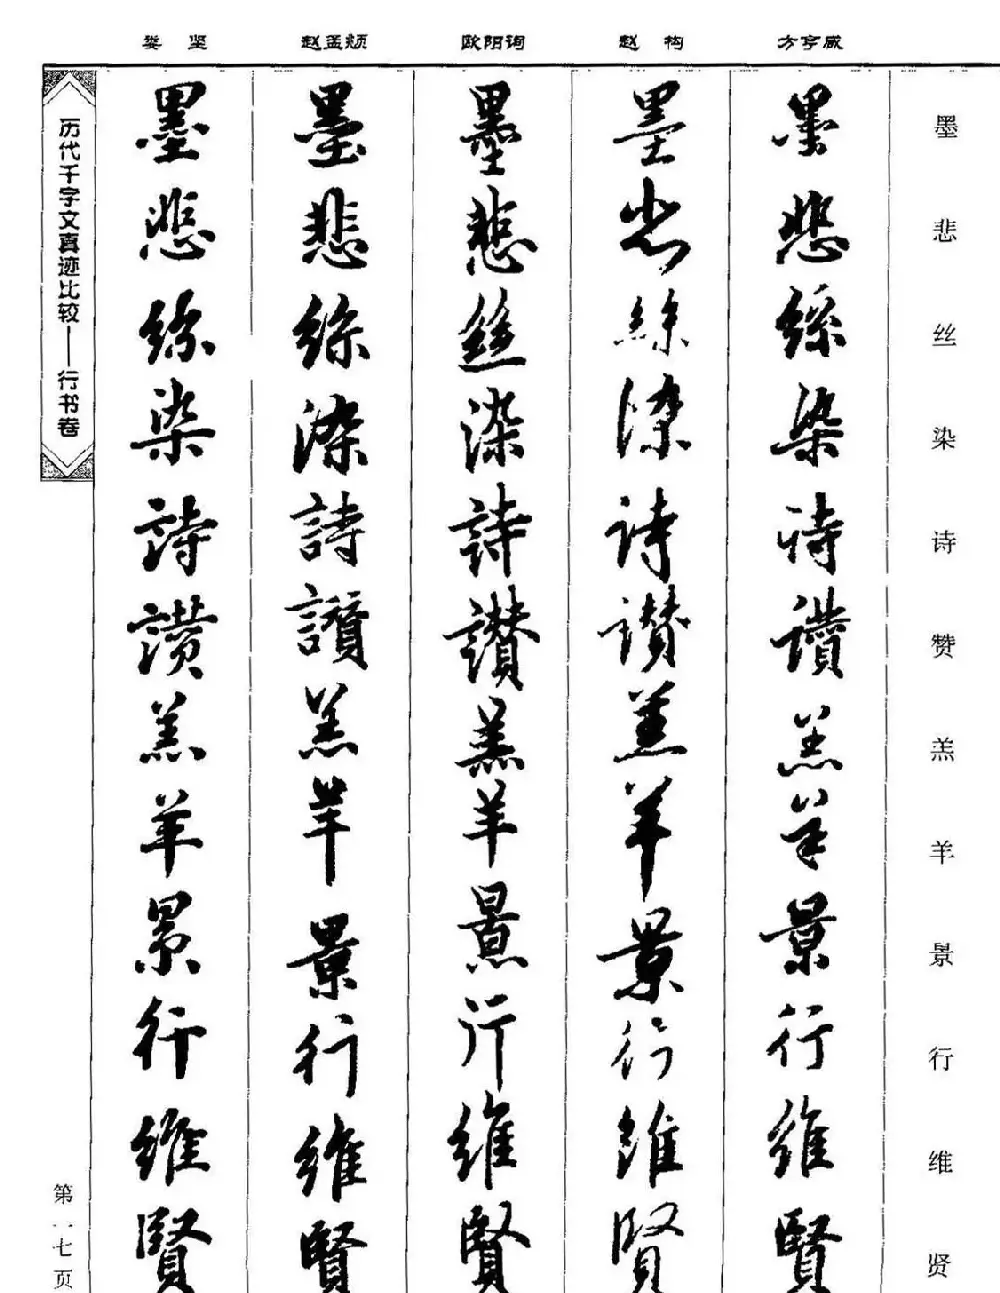 娄 坚 赵孟頫 欧阳询 赵 构 方亨咸
墨悲丝染诗赞羔羊景行维贤
墨悲絲染詩讚羔羊景行維賢
墨悲絲染詩讚羔羊景行維賢
墨悲絲染詩讚羔羊景行維賢
墨悲絲染詩讚羔羊景行維賢
墨悲絲染詩讚羔羊景行維賢
历代千字文真迹比较——行书卷
第一七页